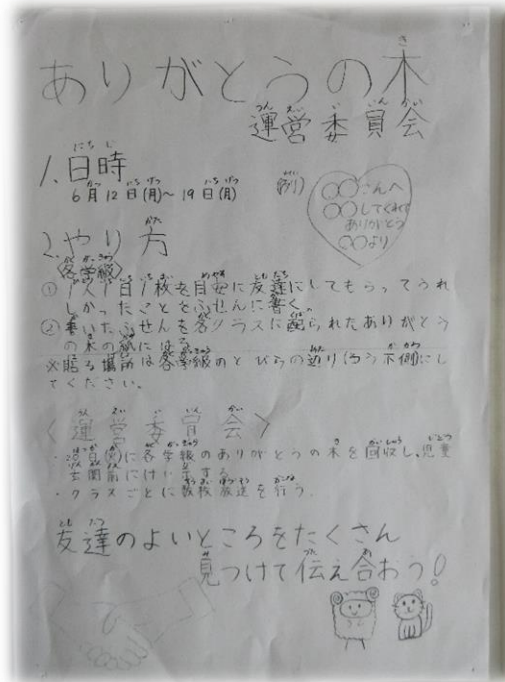 ありがとうの木
運営委員会
1.日時
6月12日(月)〜19日(月)
(例)
○○さんへ
○○してくれて
ありがとう
○○より
2.やり方
〈各学級〉
① 1人1日1枚を目安に友達にしてもらってうれ
しかったことをふせんに書く。
② 書いたふせんを各クラスに配られたありがとう
の木の紙にはる。
※貼る場所は各学級のとびらの辺り(ろう下側)にし
てください。
〈運営委員会〉
・20日(火)に各学級のありがとうの木を回収し、児童
玄関前にけい示する。
・クラスごとに数枚放送を行う。
友達のよいところをたくさん
見つけて伝え合おう!